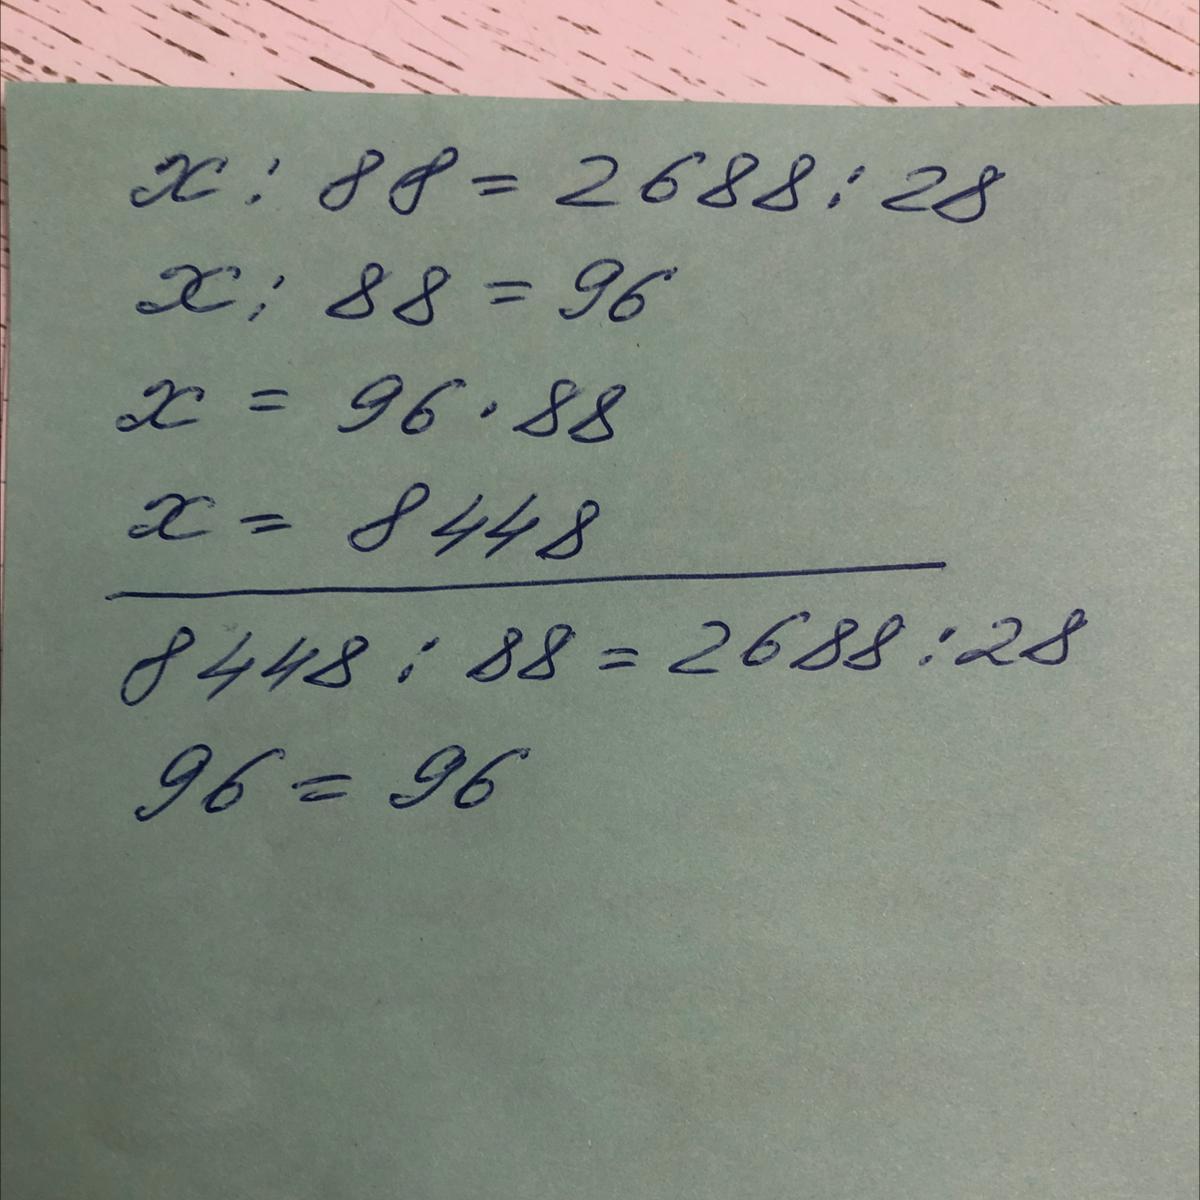 x : 88 = 2688 : 28
x : 88 = 96
x = 96 · 88
x = 8448
8448 : 88 = 2688 : 28
96 = 96